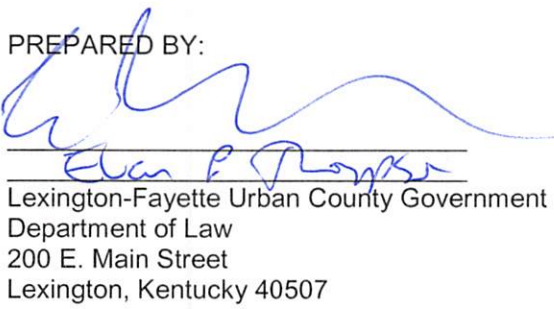 PREPARED BY:
Evan P. Thompson
Lexington-Fayette Urban County Government
Department of Law
200 E. Main Street
Lexington, Kentucky 40507